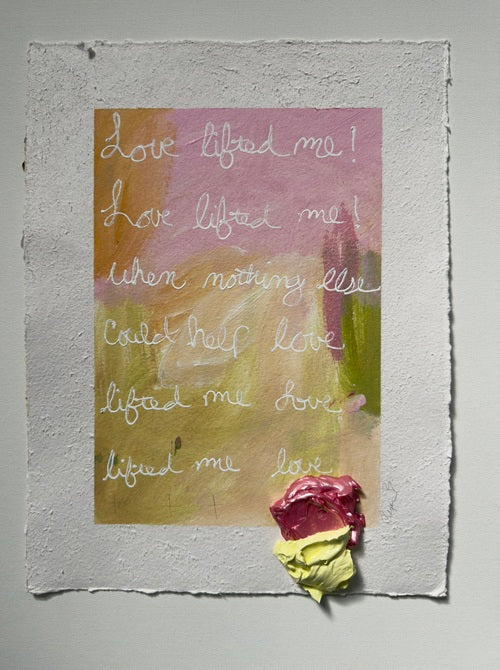 Love lifted me!
Love lifted me!
when nothing else
Could help love
lifted me Love
lifted me love